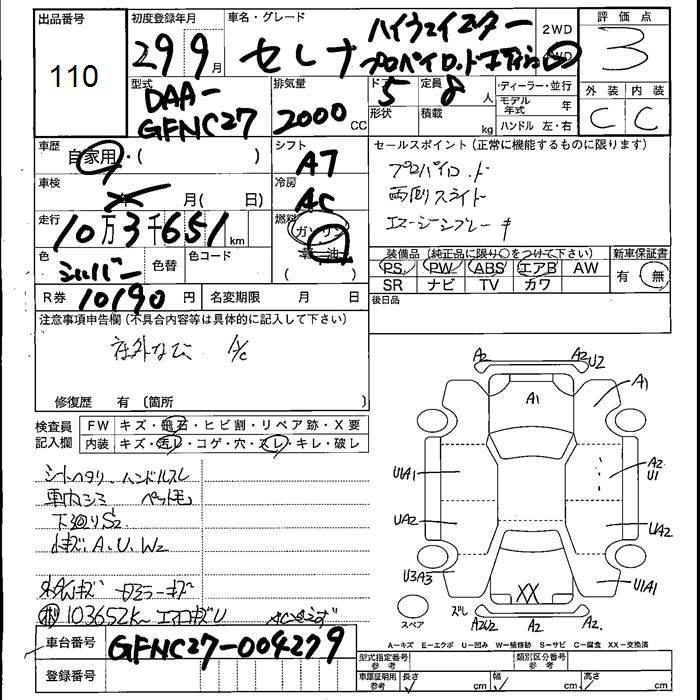 出品番号 初度登録年月 車名・グレード 2WD 評価点
110 29 9月 セレナ ハイウェイスター
プロパイロットエディション 3
型式 排気量 ドア 定員 ・ディーラー・並行 外装 内装
DAA- 5 8人 モデル年式 年
GFNC27 2000 CC 形状 積載 kg ハンドル 左・右 C C
車歴 シフト セールスポイント(正常に機能するものに限ります)
自家用・( ) A7 プロパイロット
車検 冷房 両側スライド
年 月( 日) AC エマージンブレーキ
走行 燃料
10万3千651km ガソリン
軽油
色 シルバー 色替 色コード 装備品(純正品に限り○をつけて下さい) 新車保証書
PS PW ABS エアB AW 有 無
SR ナビ TV カワ
R券 10190円 名変期限 月 日 後日品
注意事項申告欄(不具合内容等は具体的に記入して下さい)
社外ナビ A/C
修復歴 有(箇所 )
検査員記入欄 FW キズ・飛石・ヒビ割・リペア跡・X要
内装 キズ・汚レ・コゲ・穴・スレ・キレ・破レ
シートヘタリ ハンドルスレ
車内シミ ペット毛
下廻りS2
小キズ、A、U、W2
103652K
A2 A2 U2
A1 A1
U1A1 A2 U1
UA2 UA2
U3A3 XX U1A1
スペア ズレ A2U2 A2 A2
A-キズ E-エクボ U-凹み W-補修跡 S-サビ C-腐食 XX-交換済
車台番号 GFNC27-004279
型式指定番号 参考 類別区分番号 参考
登録番号 車庫証明用 参考 長さ cm 幅 cm 高さ cm